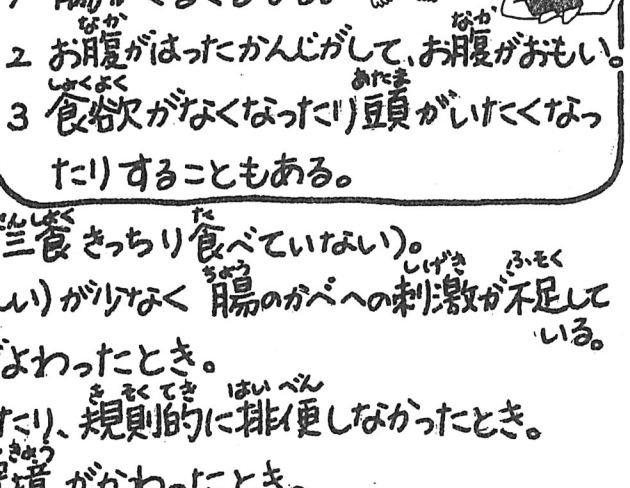 2 お腹がはったかんじがして、お腹がおもい。
3 食欲がなくなったり頭がいたくなっ
たりすることもある。
三食きっちり食べていない)。
しい)が少なく 腸のかべへの刺激が不足して
いる。
よわったとき。
たり、規則的に排便しなかったとき。
境がかわったとき。